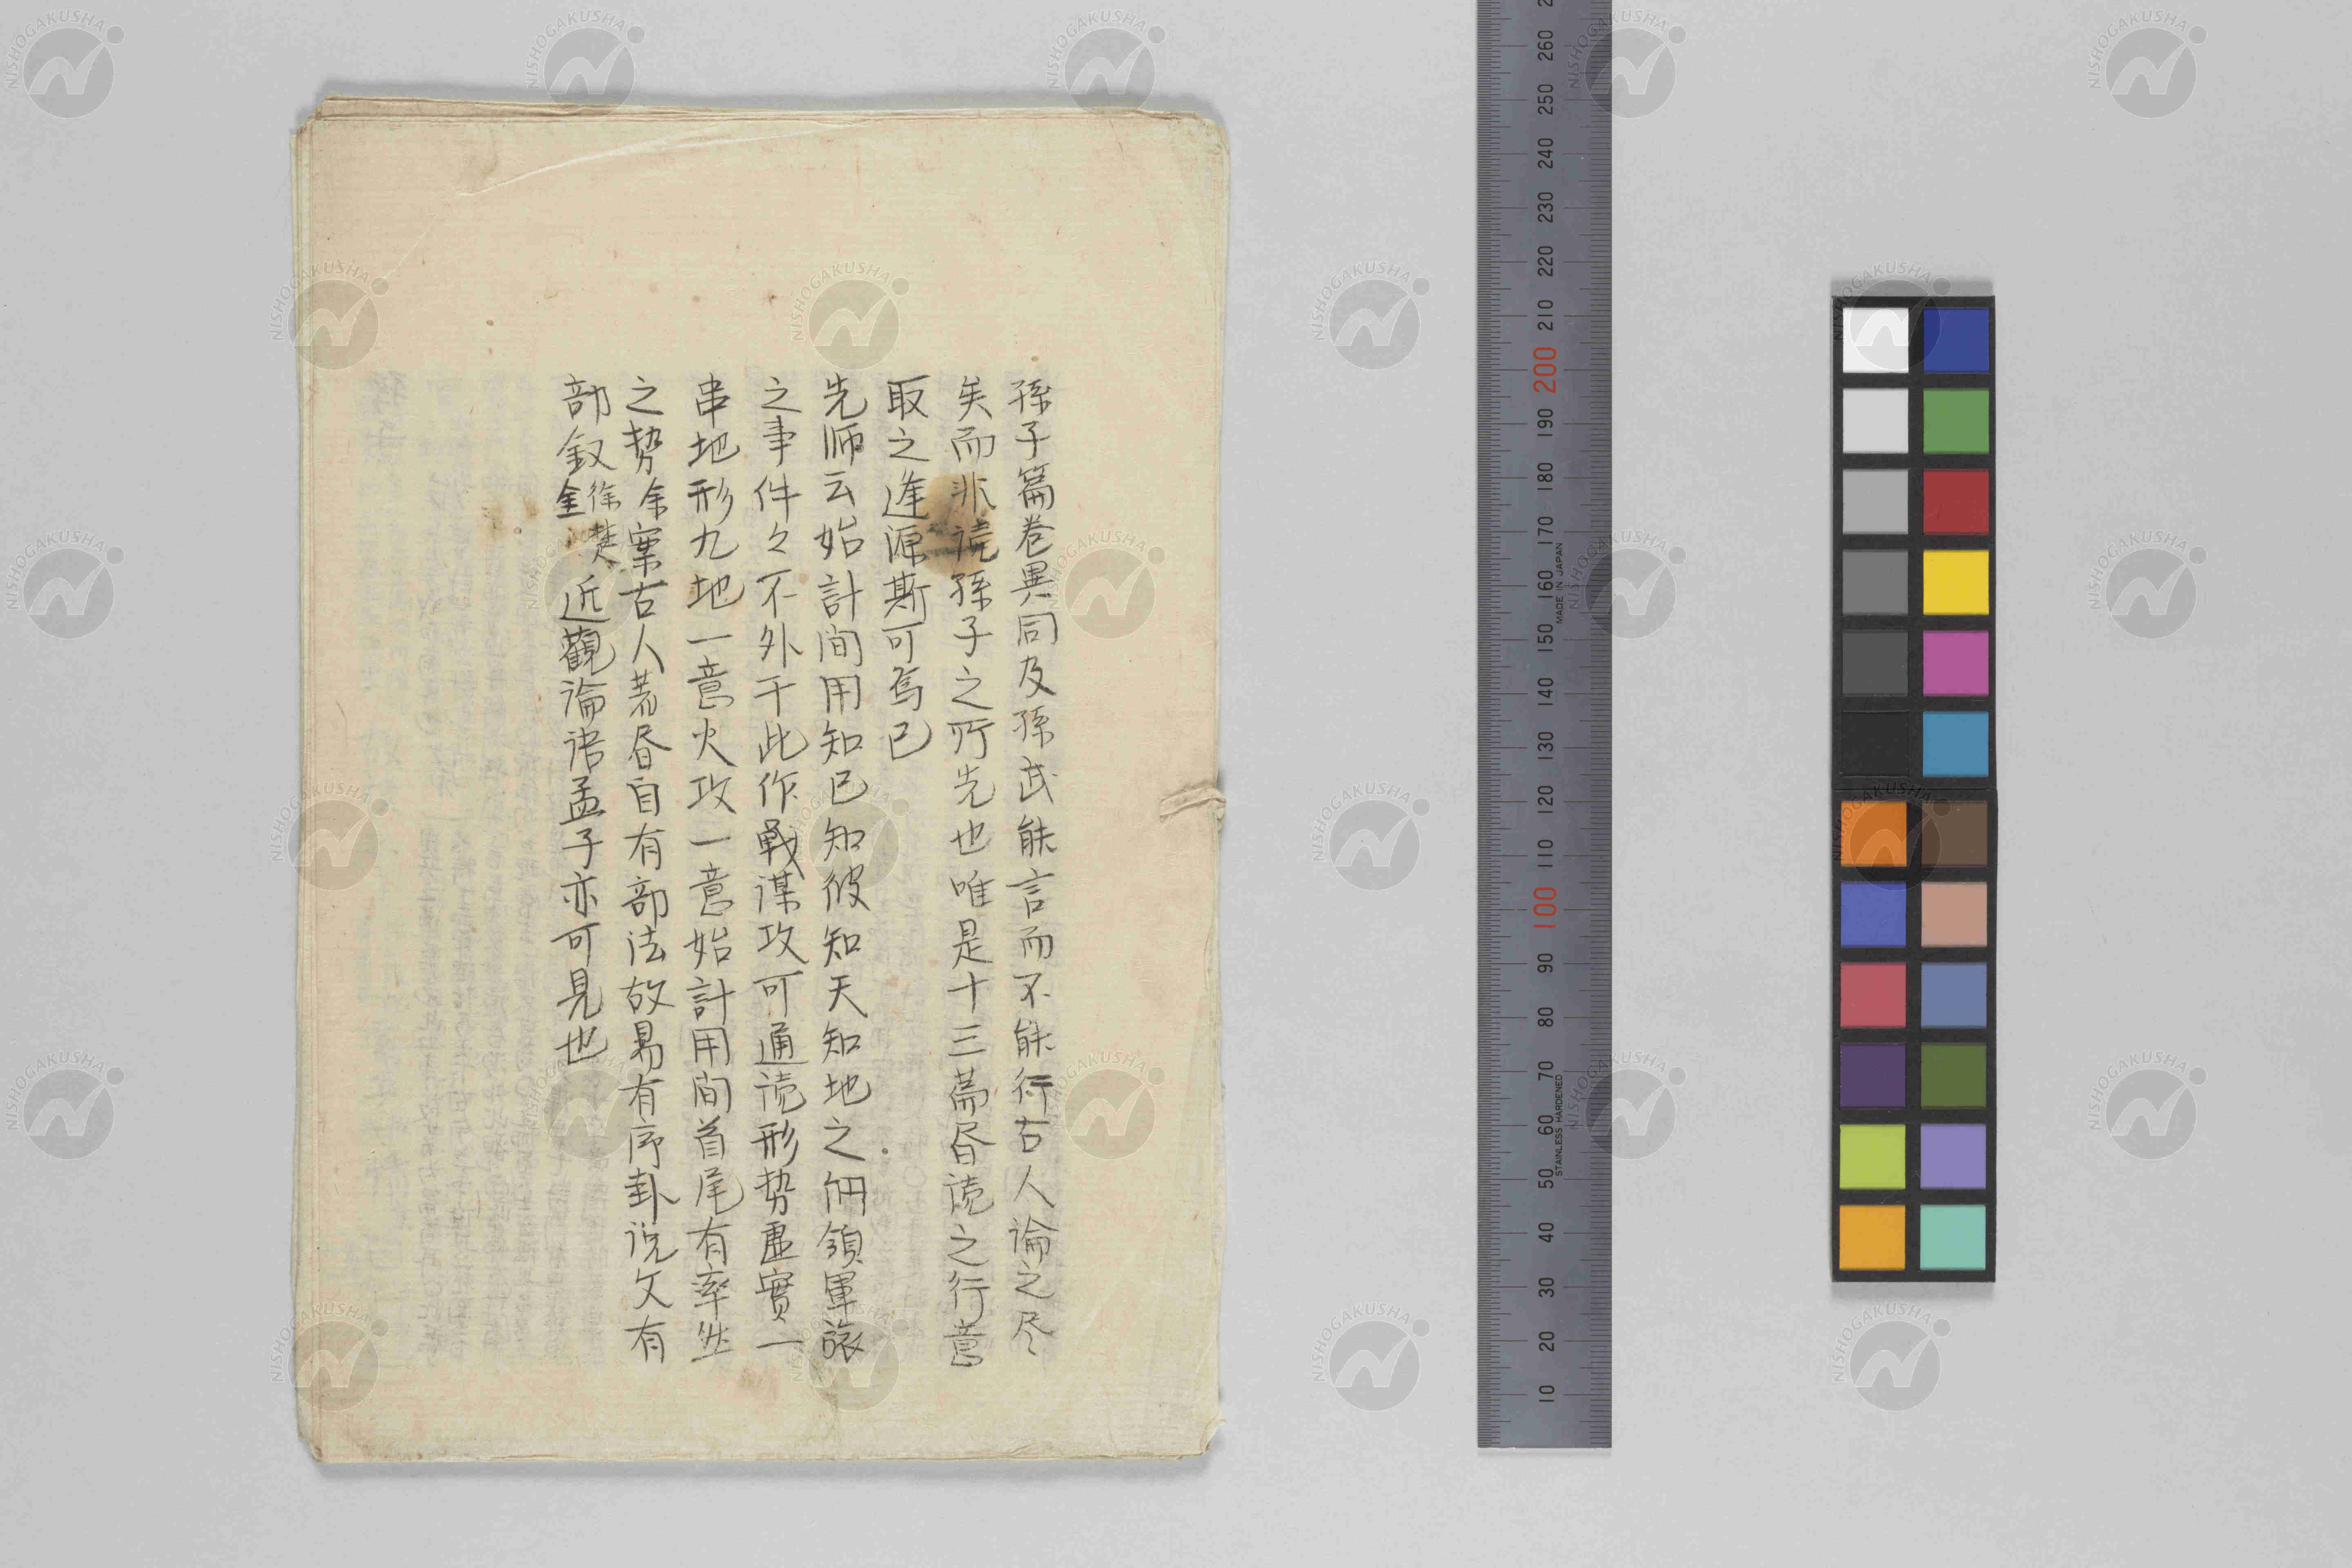 孫子篇卷異同及孫武能言而不能行古人論之尽
矣而非読孫子之所先也唯是十三篇昏読之行意
取之逢源斯可焉已
先师云始計間用知已知彼知天知地之佣領軍旅
之事件々不外干此作戰謀攻可通読形势虚實一
串地形九地一意火攻一意始計用间首尾有率然
之势余案古人著昏自有部法故易有序卦说文有
部叙徐楚
金近觀論语孟子亦可見也
260
250
240
230
220
210
200
190
180
170
160
150
140
130
120
110
100
90
80
70
60
50
40
30
20
10
MADE IN JAPAN
STAINLESS HARDENED
NISHOGAKUSHA